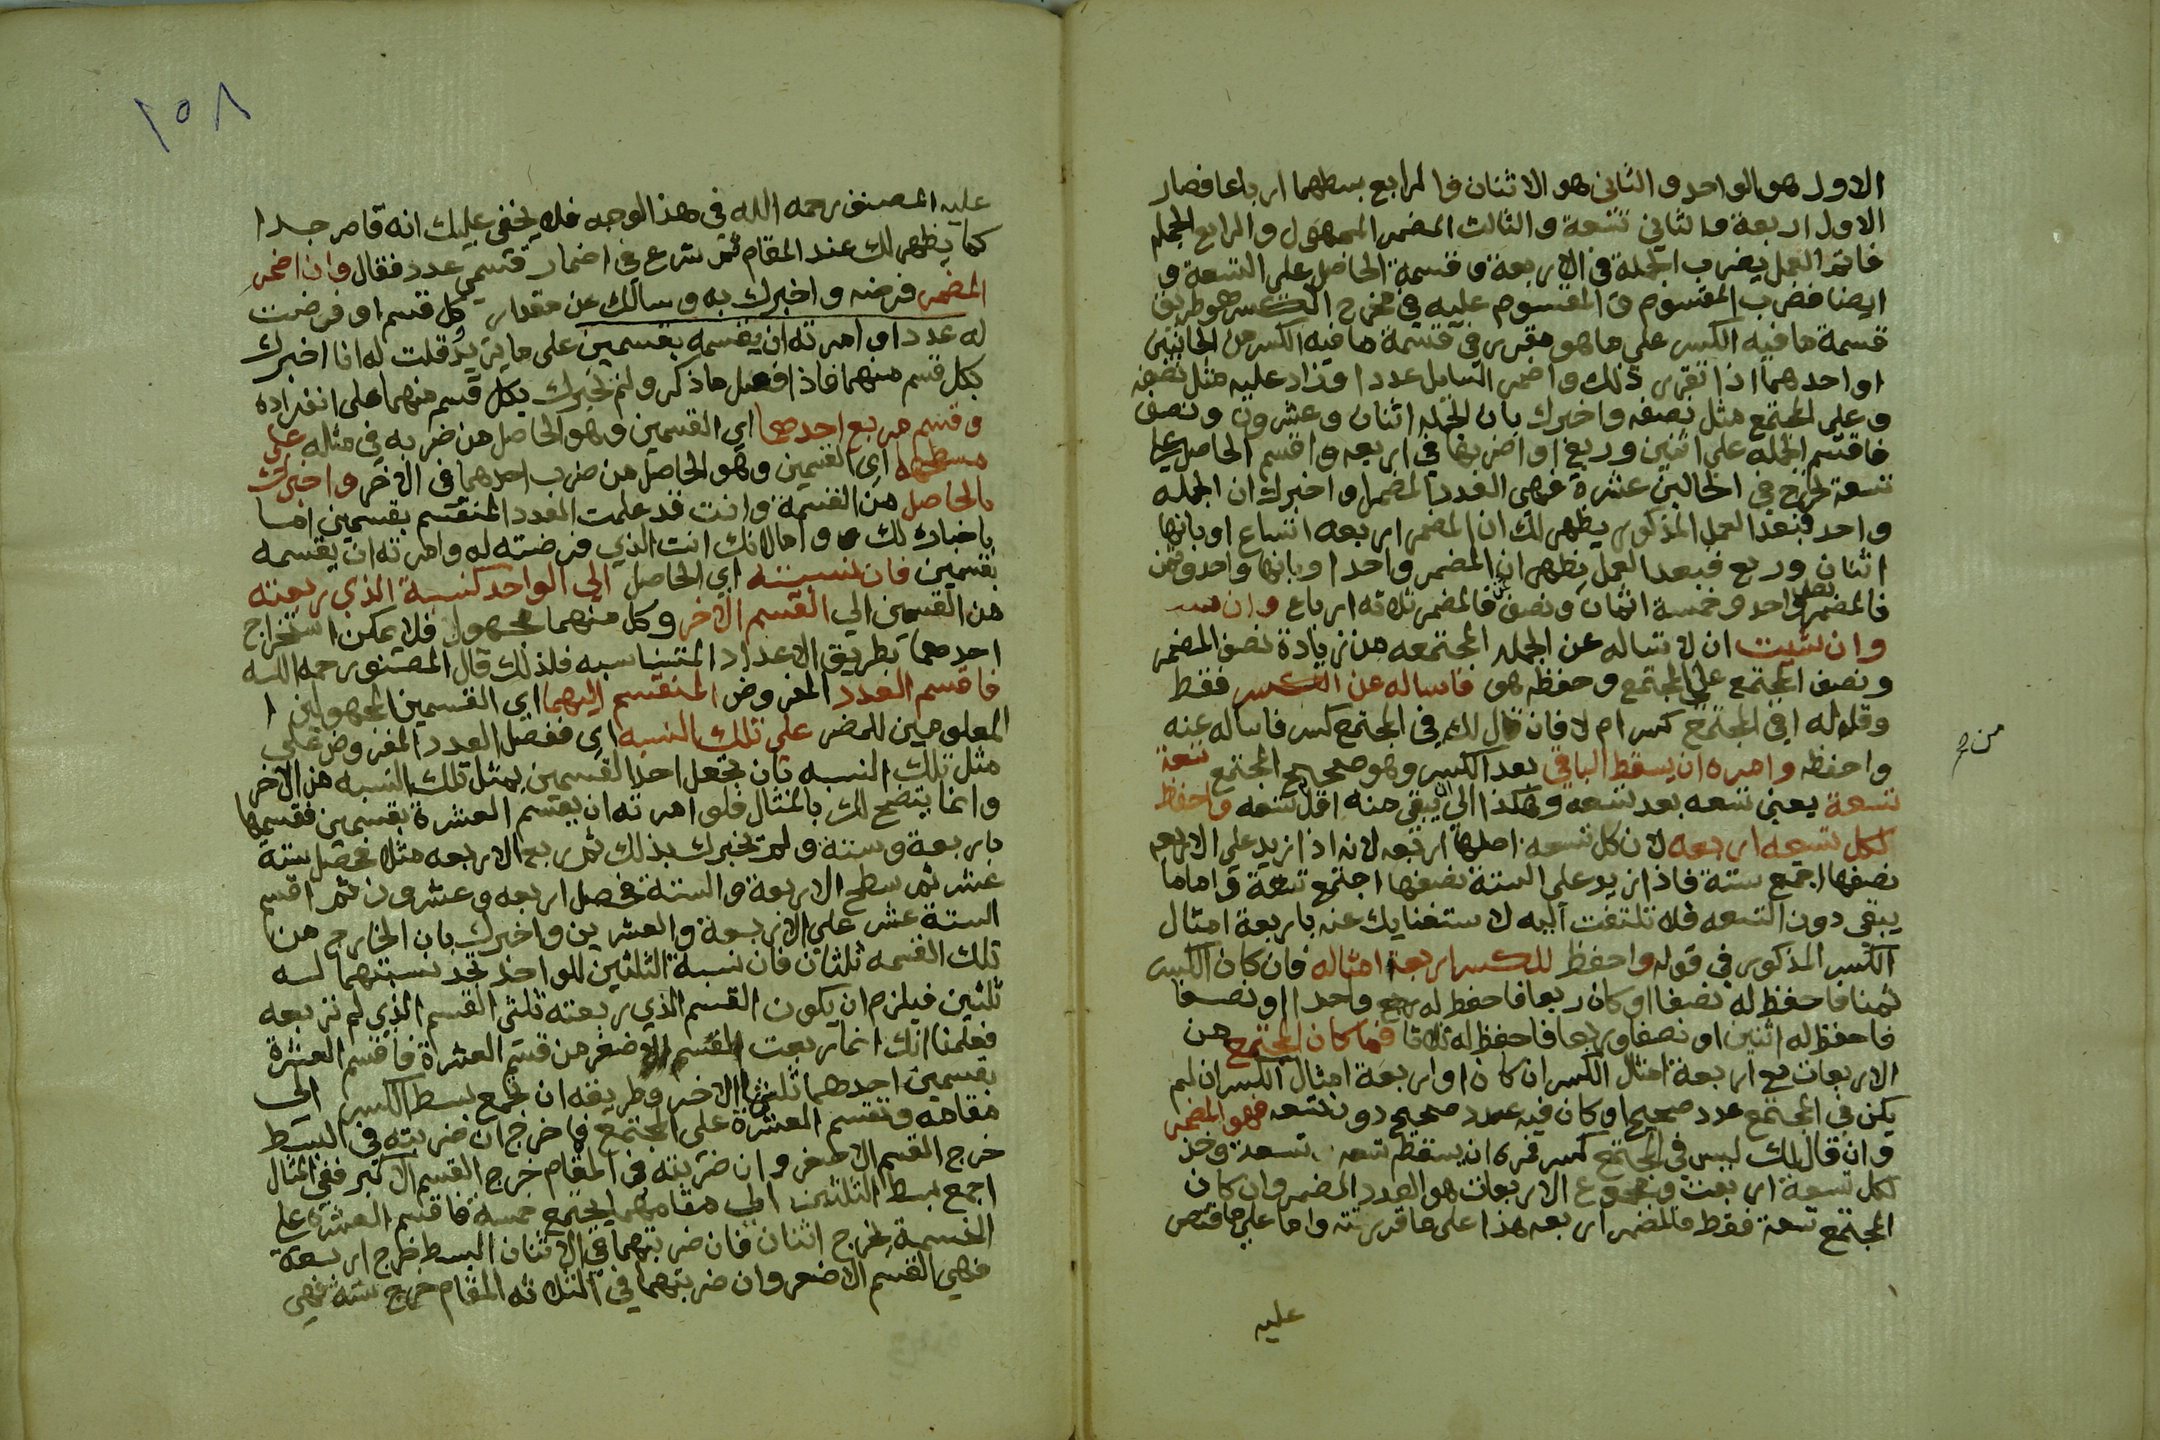 الاول هو الواحد والثاني هو الاثنان والرابع بسطهما ارباعا فصار
الاول اربعة والثاني تسعة والثالث المضمر المجهول والرابع الجمله
فانهذ العمل يضرب الجملة في الاربعة وقسمة الحاصل على التسعة و
ايضا فضرب المقسوم في المقسوم عليه في مخرج الكسر هو طريق
قسمة ما فيه الكسر على ما هو مقرر في قسمة ما فيه الكسر من الجانبين
او احدهما اذا تقرر ذلك واضمر السايل عددا وزاد عليه مثل نصفه
وعلى المجتمع مثل نصفه واخبرك بان الجمله اثنان وعشرون ونصف
فاقسم الجمله على اثنين وربع او اضربها في اربعه واقسم الحاصل على
تسعة يخرج في الحالين عشرة فهي العدد المضمر او اخبرك ان الجمله
واحد فبعد العمل المذكور يظهر لك ان المضمر اربعه اتساع او بانها
اثنان وربع فبعد العمل يظهر ان المضمر واحد او بانها واحد وثمن
فالمضمر واحد وخمسة اثمان ونصف ثمن فالمضمر ثلاثه ارباع وان
وان شيت ان لا تساله عن الجمله المجتمعه من زيادة نصف المضمر
ونصف المجتمع على المجتمع وحفظه هو فاساله عن الكسر فقط
وقل له افي المجتمع كسر ام لا فان قال لك في المجتمع كسر فاساله عنه
واحفظه وامره ان يسقط الباقي بعد الكسر وهو صحيح المجتمع تسعة
تسعة يعني تسعه بعد تسعه وهكذا الى ان يبقى منه اقل تسعه واحفظ
لكل تسعه اربعه لان كل تسعه اصلها اربعه لانه اذا زيد على الاربعه
نصفها اجتمع ستة فاذا زيد على الستة نصفها اجتمع تسعة واما ما
يبقى دون التسعه فلا تلتفت اليه لاستغنايك عنه باربعة امثال
الكسر المذكور في قوله واحفظ للكسر اربعة امثاله فان كان الكسر
ثمنا فاحفظ له نصفا او كان ربعا فاحفظ له واحدا او نصفا
فاحفظ له اثنين او نصفا وربعا فاحفظ له ثلاثا فما كان المجتمع من
الاربعات مع اربعة امثال الكسر ان كان او اربعة امثال الكسر ان لم
يكن في المجتمع عدد صحيح او كان فيه عدد صحيح دون تسعه فهو المضمر
وان قال لك ليس في المجتمع كسر فمره ان يسقط تسعه تسعة وخذ
لكل تسعة اربعة ومجموع الاربعات هو العدد المضمر وان كان
المجتمع تسعة فقط فالمضمر اربعه هذا على ما قررته واما على ما اقتصر
عليه
١٥٨
عليه المصنف رحمه الله في هذا الوجه فلا يخفى عليك انه قاصر جدا
كما يظهر لك عند المقام ثم شرع في اضمار قسمي عدد فقال وان اضمر
المضمر فرضه واخبرك به وسالك عن مقدار كل قسم او فرضت
له عددا وامرته ان يقسمه بقسمين على ما يريد وقلت له انا اخبرك
بكل قسم منهما فاذا فعل ما ذكر ولم يخبرك بكل قسم منهما على انفراده
وقسم مربع احدهما اي القسمين وهو الحاصل من ضربه في مثله على
مسطحهما اي القسمين وهو الحاصل من ضرب احدهما في الاخر واخبرك
بالحاصل من القسمة وانت قد علمت العدد المنقسم بقسمين اما
باخباره لك واما لانك انت الذي فرضته له وامرته ان يقسمه
بقسمين فان نسبته اي الحاصل الى الواحد كنسبة الذي ربعته
من القسمين الى القسم الاخر وكل منهما مجهول فلا يمكن استخراج
احدهما بطريق الاعداد المتناسبه فلذلك قال المصنف رحمه الله
فاقسم العدد المفروض المنقسم اليهما اي القسمين المجهولين ا
المعلومين للمضمر على تلك النسبه اي ففصل العدد المفروض على
مثل تلك النسبه بان تجعل احد القسمين بمثل تلك النسبه من الاخر
وانما يتضح لك بالمثال فلو امرته ان يقسم العشرة بقسمين فقسمها
باربعة وستة ولم يخبرك بذلك ثم ربع الاربعه مثلا فحصل ستة
عشر ثم سطح الاربعة والستة فحصل اربعه وعشرون ثم اقسم
الستة عشر على الاربعة والعشرين واخبرك بان الخارج من
تلك القسمه ثلثان فان نسبة الثلثين للواحد تجد نسبتهما له
ثلثين فيلزم ان يكون القسم الذي ربعته ثلثي القسم الذي لم تربعه
فعلمنا انك انما ربعت القسم الاصغر من قسم العشرة فاقسم العشرة
بقسمين احدهما ثلثا الاخر وطريقه ان تجمع بسط الكسر الى
مقامه وتقسم العشرة على المجتمع فما خرج ان ضربته في البسط
خرج القسم الاصغر وان ضربته في المقام خرج القسم الاكبر ففي المثال
اجمع بسط الثلثين الى مقامهما يجتمع خمسة فاقسم العشرة على
الخمسة يخرج اثنان فان ضربتهما في الاثنان البسط خرج اربعة
فهي القسم الاصغر وان ضربتهما في الثلاثه المقام خرج ستة فهي